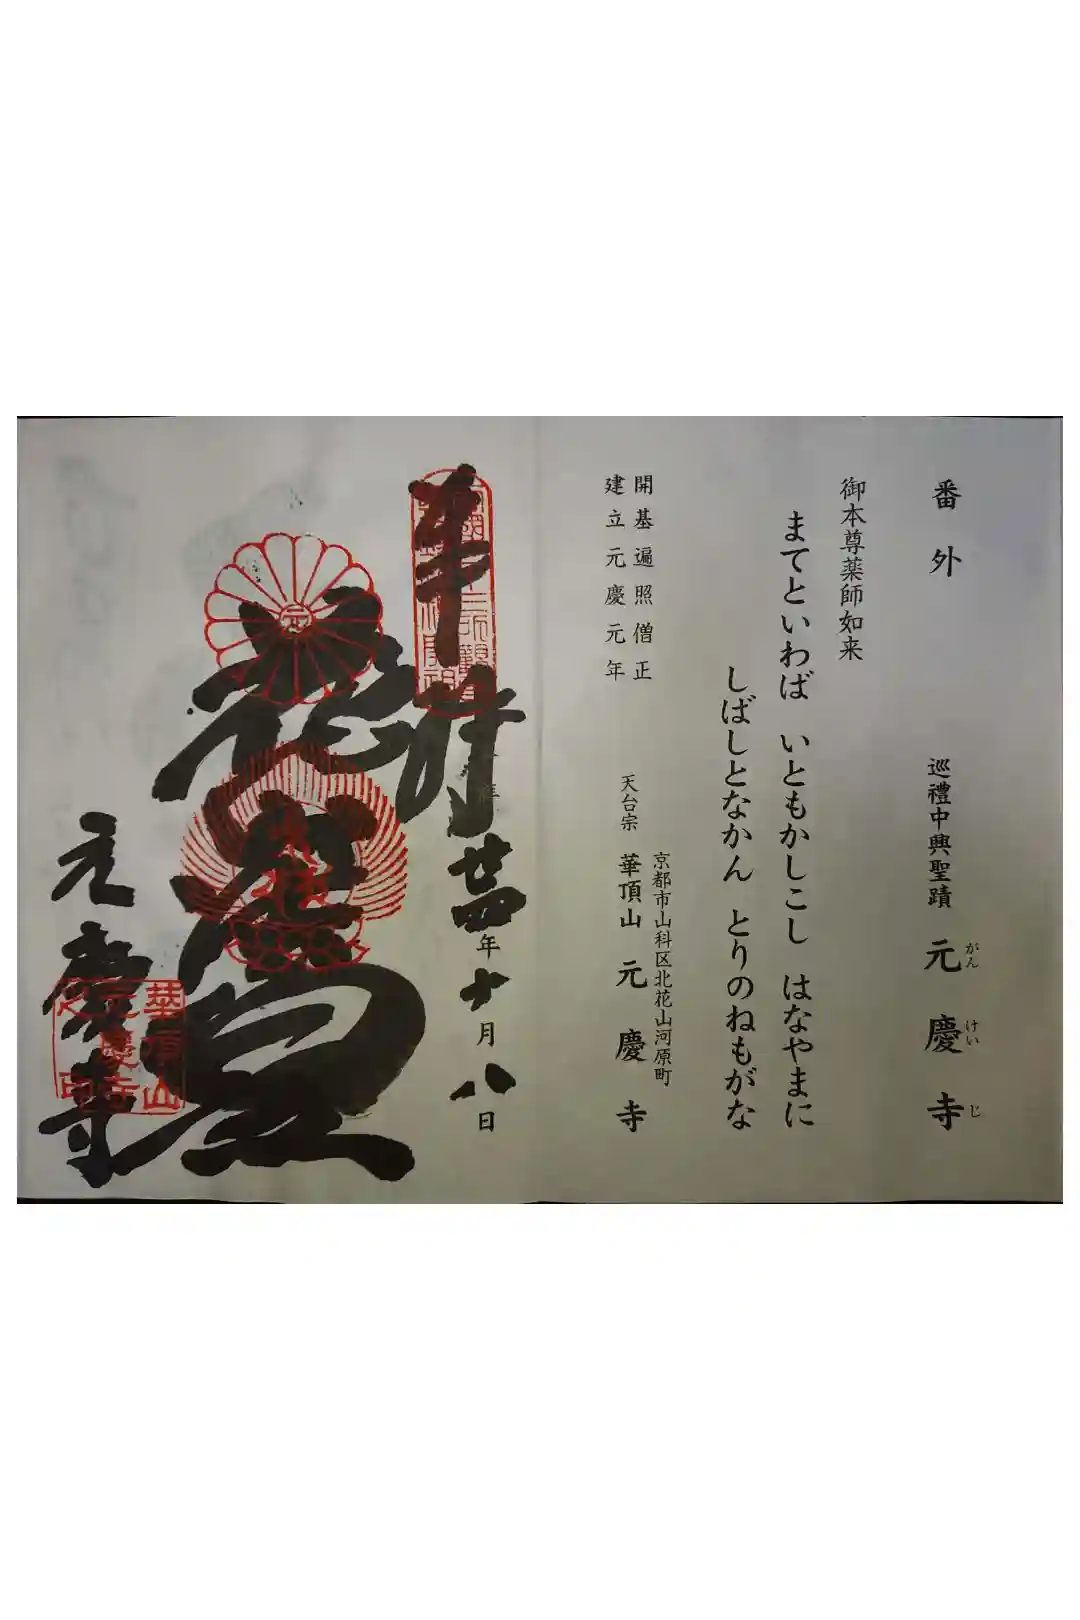 番外 巡禮中興聖蹟 元慶寺
がんけいじ
御本尊薬師如来
まてといわば いともかしこし はなやまに
しばしとなかん とりのねもがな
開基遍照僧正
建立元慶元年
京都市山科区北花山河原町
天台宗 華頂山 元慶寺
奉拝 年十月八日
元慶寺
華頂山
元慶寺
之印